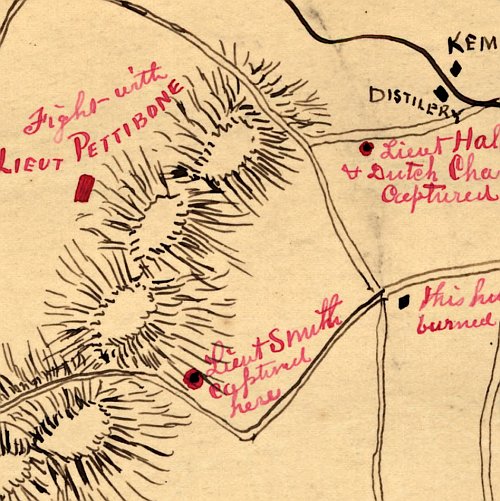 KEM
DISTILERY
Fight with
LIEUT PETTIBONE
Lieut Hal
& Dutch Cha
Captured
this hu
burned
Lieut Smith
captured
here